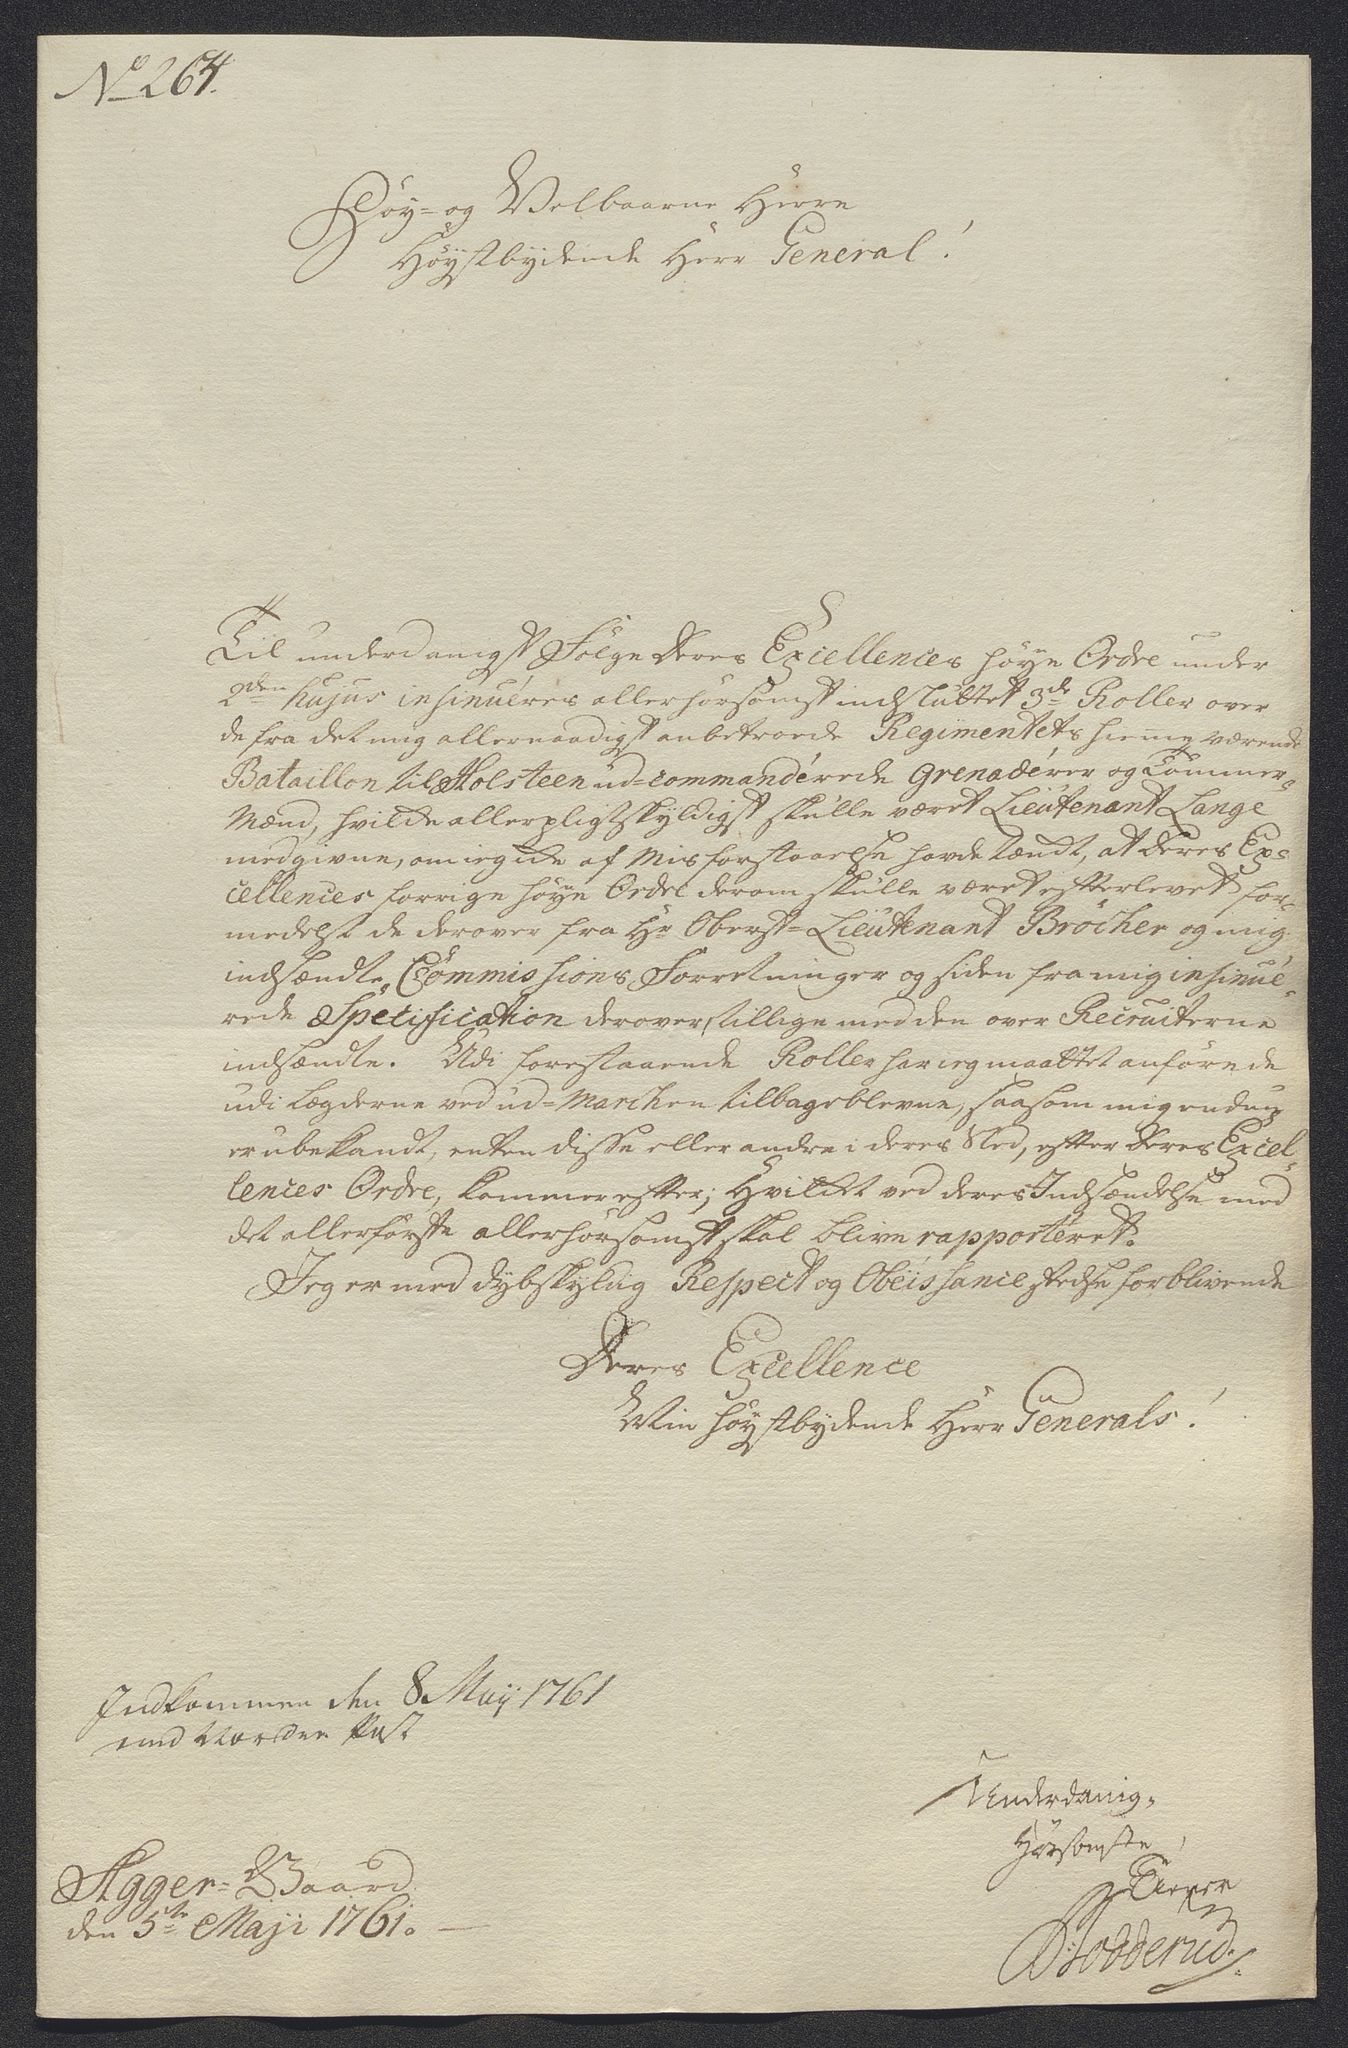 No 264.
Høy- og Velbaarne Herre
Høystbydende Herr General!
Til underdanigst Følge Deres Excellences høye Ordre under
2den hujus insinuéres allerhørsomst indsluttet 3de Roller over
de fra det mig allernaadigst anbetroede Regimentets hiemeværende
Bataillon til Holsteen ud-commandérede Grenadérer og Tømmer-
Mænd, hvilke allerpligtskyldigst skulle været Lieutenant Lange
medgivne, om ieg icke af Misforstaaelse havde tændt, at Deres Ex-
cellences forrige høye Ordre derom skulle været efterlevet for-
medelst de derover fra Hr Oberst-Lieutenant Brøcher og mig
indsændte Commissions Forretninger og siden fra mig insinué-
rede Specification derover, tillige med den over Recruiterne
indsændte. Udi forestaaende Roller har ieg maattet anføre de
udi Lægderne ved ud-Marchen tilbageblevne, saasom mig endnu
er ubekandt, enten disse eller andre i deres Sted, efter Deres Excel-
lences Ordre, kommer efter; Hvilket ved deres Indsændelse med
det allerførste allerhørsomst skal blive rapportéret.
Jeg er med dybskyldig Respect og Obeissance stedse forblivende
Deres Excellence
Min høystbydende Herr Generals!
Indkommen den 8 Maij 1761
med Norden Post
Underdanig-
Hørsomste
Tiener
Agger-Gaard
den 5te Maji 1761.